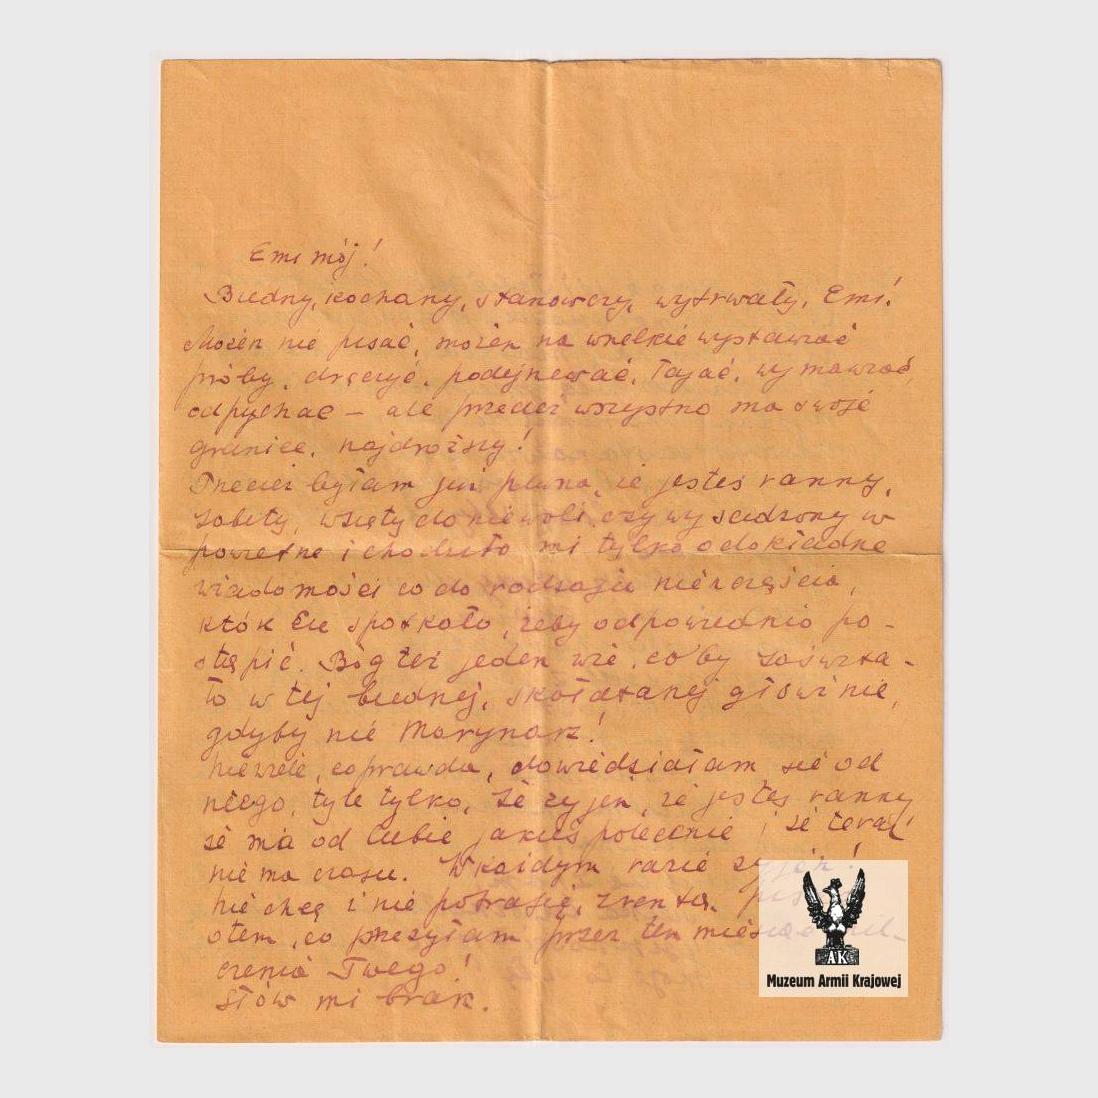 Emi mój!
Biedny, kochany, stanowczy, wytrwały, Emi!
Możesz nie pisać, możesz na wszelkie wystawiać
próby, dręczyć, podejrzewać, łajać, wymawiać,
odpychać – ale przecież wszystko ma swoje
granice, najdroższy!
Przecież byłam już pewna, że jesteś ranny,
zabity, wzięty do niewoli, czy wysiedzony w
i chodziło mi tylko o dokładne
wiadomości co do rodzaju nieszczęścia,
które Cię spotkało, żeby odpowiednio po-
stąpić. Bóg też jeden wie, co by zaświta-
ło w tej biednej, skołatanej głowinie,
gdyby nie Marynarz!
Niewiele, coprawda, dowiedziałam się od
niego, tyle tylko, że żyjesz, że jesteś ranny
że ma od Ciebie jakieś polecenie i że teraz
nie ma czasu. W każdym razie żyjesz!
Nie chcę i nie potrafię, zresztą,
o tem, co przeżyłam przez ten miesiąc mil-
czenia Twego!
Słów mi brak.
AK
Muzeum Armii Krajowej